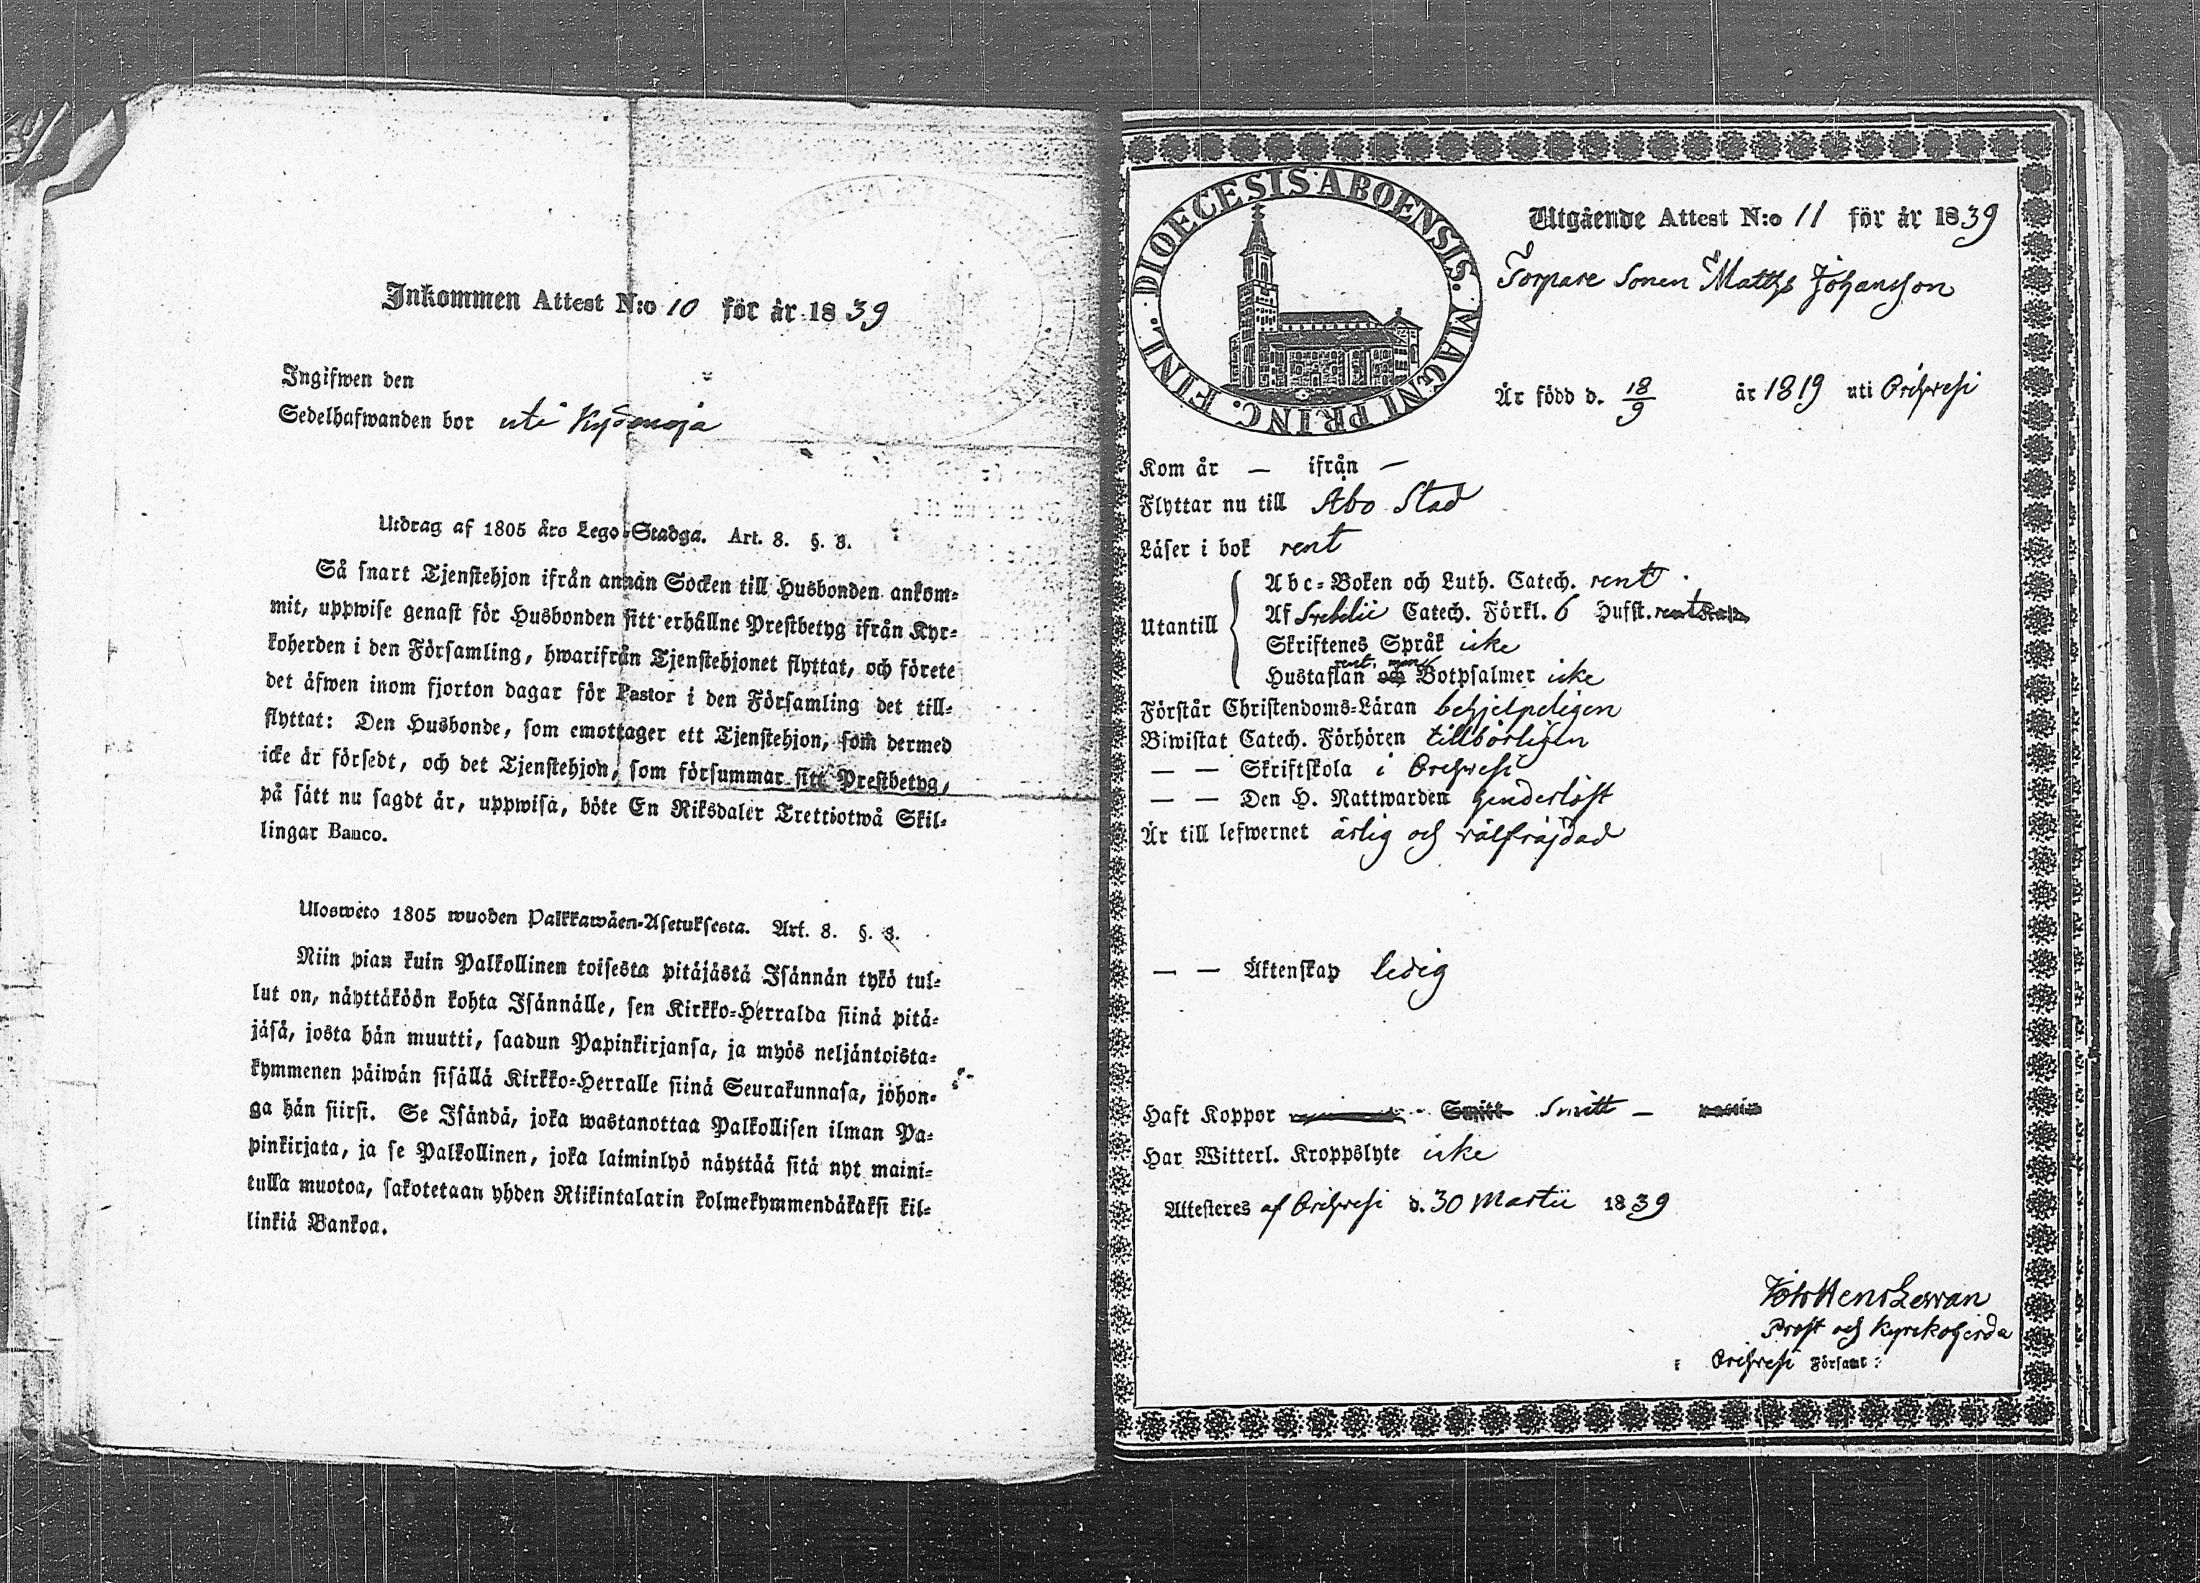 Inkommen Attest N:o 10 för år 1839
Ingifwen den
Sedelhafwanden bor uti Kydenoja
Utdrag af 1805 års Lego-Stadga. Art. 8. §. 3.
Så snart Tjenstehjon ifrån annan Socken till Husbonden ankom=
mit, uppwise genast för Husbonden sitt erhållne Prestbetyg ifrån Kyr=
koherden i den Församling, hwarifrån Tjenstehjonet flyttat, och förete
det äfwen inom fjorton dagar för Pastor i den Församling det till=
flyttat: Den Husbonde, som emottager ett Tjenstehjon, som dermed
icke är försedt, och det Tjenstehjon, som försummar sitt Prestbetyg,
på sätt nu sagdt är, uppwisa, böte En Riksdaler Trettiotwå Skil=
lingar Banco.
Ulosweto 1805 wuoden Palkkawäen-Asetuksesta. Art. 8. §. 3.
Niin pian kuin Palkollinen toisesta pitäjästä Isännän tykö tul=
lut on, näyttäköön kohta Isännälle, sen Kirkko=Herralda siinä pitä=
jäsä, josta hän muutti, saadun Papinkirjansa, ja myös neljäntoista=
kymmenen päiwän sisällä Kirkko=Herralle siinä Seurakunnasa, johon=
ga hän siirsi. Se Isändä, joka wastanottaa Palkollisen ilman Pa=
pinkirjata, ja se Palkollinen, joka laiminlyö näyttää sitä nyt maini=
tulla muotoa, sakotetaan yhden Riikintalarin kolmekymmendäkaksi kil=
linkiä Bankoa.
DIOECESIS ABOENSIS. MAGNI PRINC. FINL.
Utgående Attest N:o 11 för år 1839
Torpare Sonen Matths Johansson
Är född d. 18/9 år 1819 uti Orihvesi
Kom år — ifrån —
Flyttar nu till Åbo Stad
Läser i bok rent
Utantill
Abc=Boken och Luth. Catech. rent
Af Srebelii Catech. Förkl. 6 Hufst. rent
Skriftenes Språk icke
Hustaflan rent, men Botpsalmer icke
Förstår Christendoms=Läran behjelpeligen
Biwistat Catech. Förhören tillbörligen
— — Skriftskola i Orihvesi
— — Den H. Nattwarden henderlöst
Är till lefwernet ärlig och välfräjdad
— — Äktenskap ledig
Haft Koppor Smitt Smitt —
Har Witterl. Kroppslyte icke
Attesteres af Orihvesi d. 30 Martii 1839
Joh Henr Lewan
Prost och Kyrkoherde
i Orihvesi Församl: